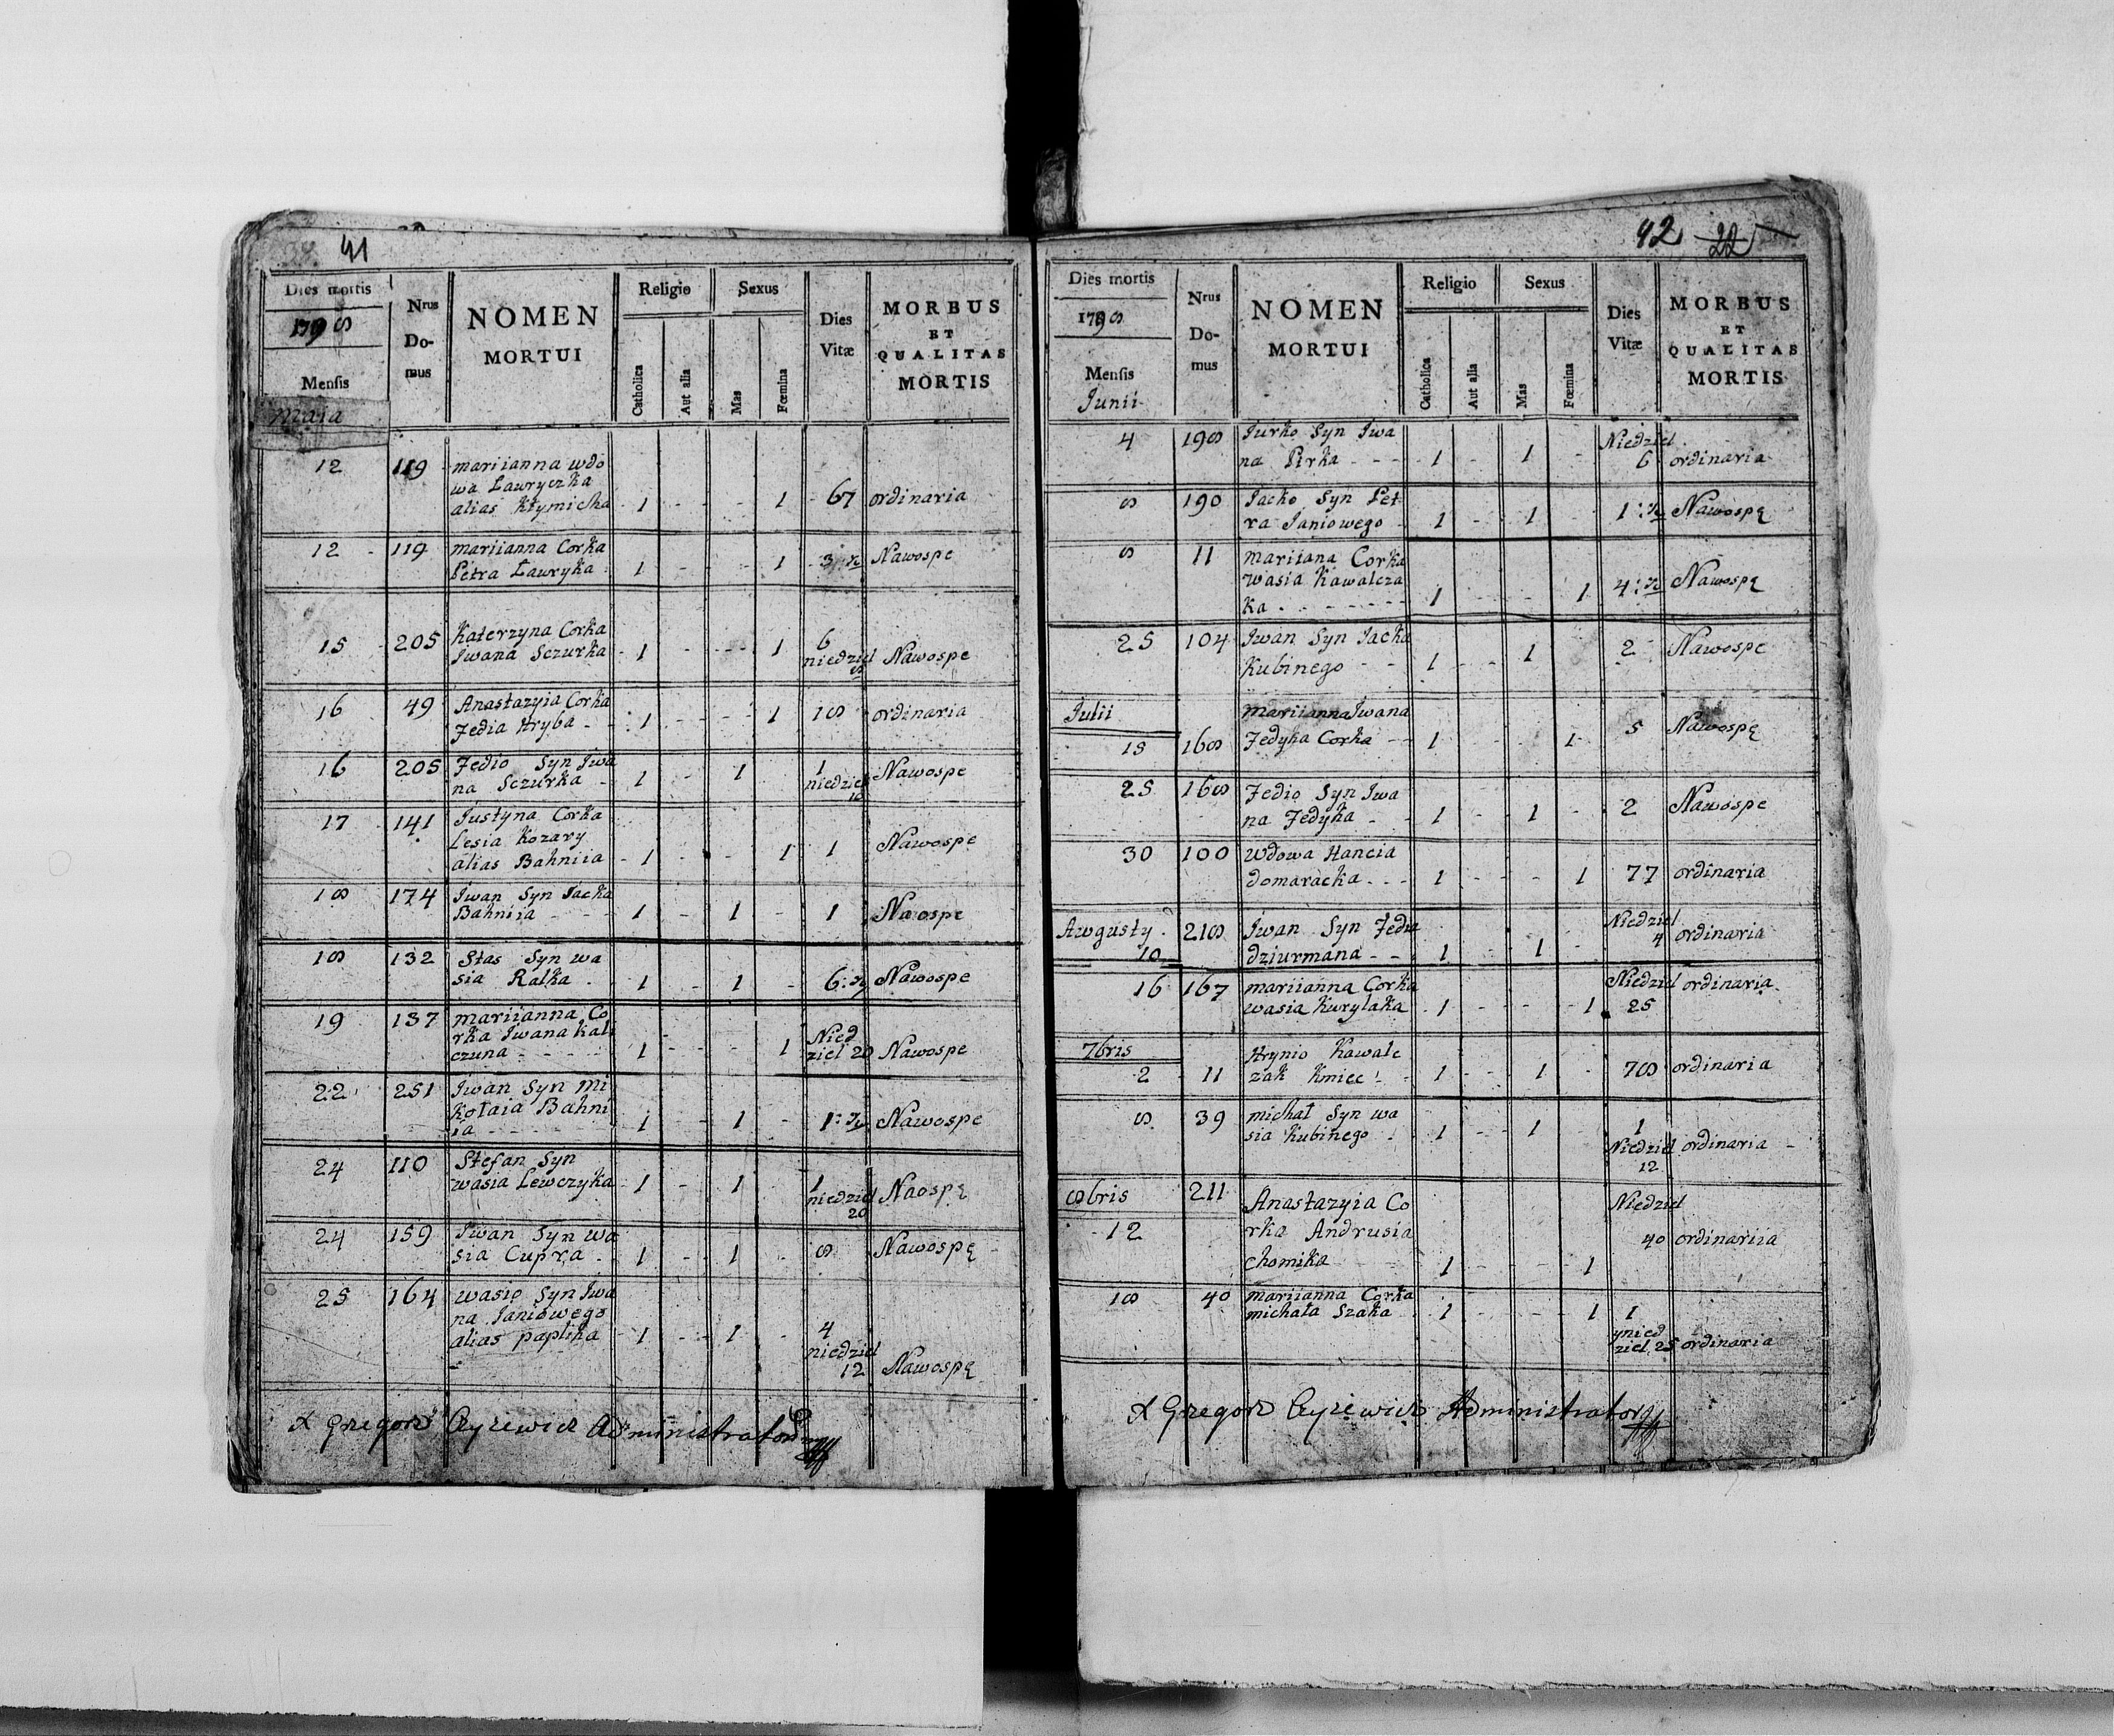 41
Dies mortis
1798
Mensis
Maia
Nrus
Do-
mus
NOMEN
MORTUI
Religio
Catholica
Aut alia
Sexus
Mas
Fœmina
Dies
Vitæ
MORBUS
ET
QUALITAS
MORTIS
12 119 mariianna wdo
wa Ławryczka
alias Kłymicha 1 - - - 1 67 ordinaria
12 119 mariianna Corka
Petra Ławryka 1 - - - 1 3 Nawospe
15 205 Katerzyna Corka
Iwana Sczurka 1 - - - 1 6
niedziel Nawospe
8
16 49 Anastazyia Corka
Fedia Hryba - 1 - - - 1 18 ordinaria
16 205 Fedio Syn Iwa
na Sczurka - 1 - 1 1
niedziel Nawospe
10
17 141 Justyna Corka
Lesia Kozary
alias Bahniia - 1 - - 1 1 Nawospe
18 174 Iwan Syn Iacka
Bahniia - - - 1 - 1 - 1 Naospe
18 132 Stas Syn wa
sia Ralka . 1 - 1 - 6 Nawospe
19 137 mariianna Co
rka Iwana Kali
czuna - - - - 1 - - - 1 Nied
ziel 20 Nawospe
22 251 Iwan Syn Mi
kołaia Bahni
ia - - - - 1 - 1 - 1 Nawospe
24 110 Stefan Syn
wasia Lewczyka - 1 - 1 - 1
niedziel Naospę
20
24 159 Iwan Syn wa
sia Cupra . 1 - 1 - 8 Nawospę -
25 164 wasio Syn Iwa
na Janiowego
alias paplika - 1 - - 1 - 4
niedziel
12 Nawospę
X Gregorz Cyrewicz Administrator
42 22
Dies mortis
1798
Mensis
Junii
Nrus
Do-
mus
NOMEN
MORTUI
Religio
Catholica
Aut alia
Sexus
Mas
Fœmina
Dies
Vitæ
MORBUS
ET
QUALITAS
MORTIS
4 198 Jurko Syn Iwa
na Pirka - - - 1 - 1 - Niedziel
6 ordinaria
8 190 Jacko Syn Pet
ra Janiowego - 1 - 1 1 Nawospę
8 11 mariiana Corka
wasia Kawalcza
ka - - - - - - - 1 - - - 1 4 Nawospę
25 104 Iwan Syn Iacka
Kubinego - - 1 - - 1 2 Nawospe
Julii
15 168 mariianna Iwana
Fedyka Corka - 1 - - - 1 5 Nawospę
25 168 Fedio Syn Iwa
na Fedyka - - 1 - 1 - 2 Nawospe
30 100 wdowa Hancia
domaracka - - - 1 - - - 1 77 ordinaria
Awgusty
10 218 Iwan Syn Fedia
dziurmana - - 1 - 1 - Niedziel
4 ordinaria
16 167 mariianna Corka
wasia Kurylaka 1 - - - 1 Niedziel ordinaria
25
7bris
2 11 Hrynio Kawalc
zak Kmiec - 1 - 1 - 78 ordinaria
8 39 michał Syn wa
sia Kubinego . 1 - 1 1
Niedziel ordinaria -
12
8bris
12 211 Anastazyia Co
rka Andrusia
chomika 1 - - - 1 Niedziel
40 ordinariia
18 40 mariianna Corka
michała Szaka 1 - - - 1 1
ynied
ziel 25 ordinaria
X Gregorz Cyrewicz Administrator